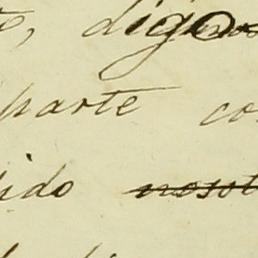 te, digo
parte co
ido nosot